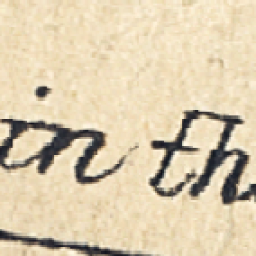 in th